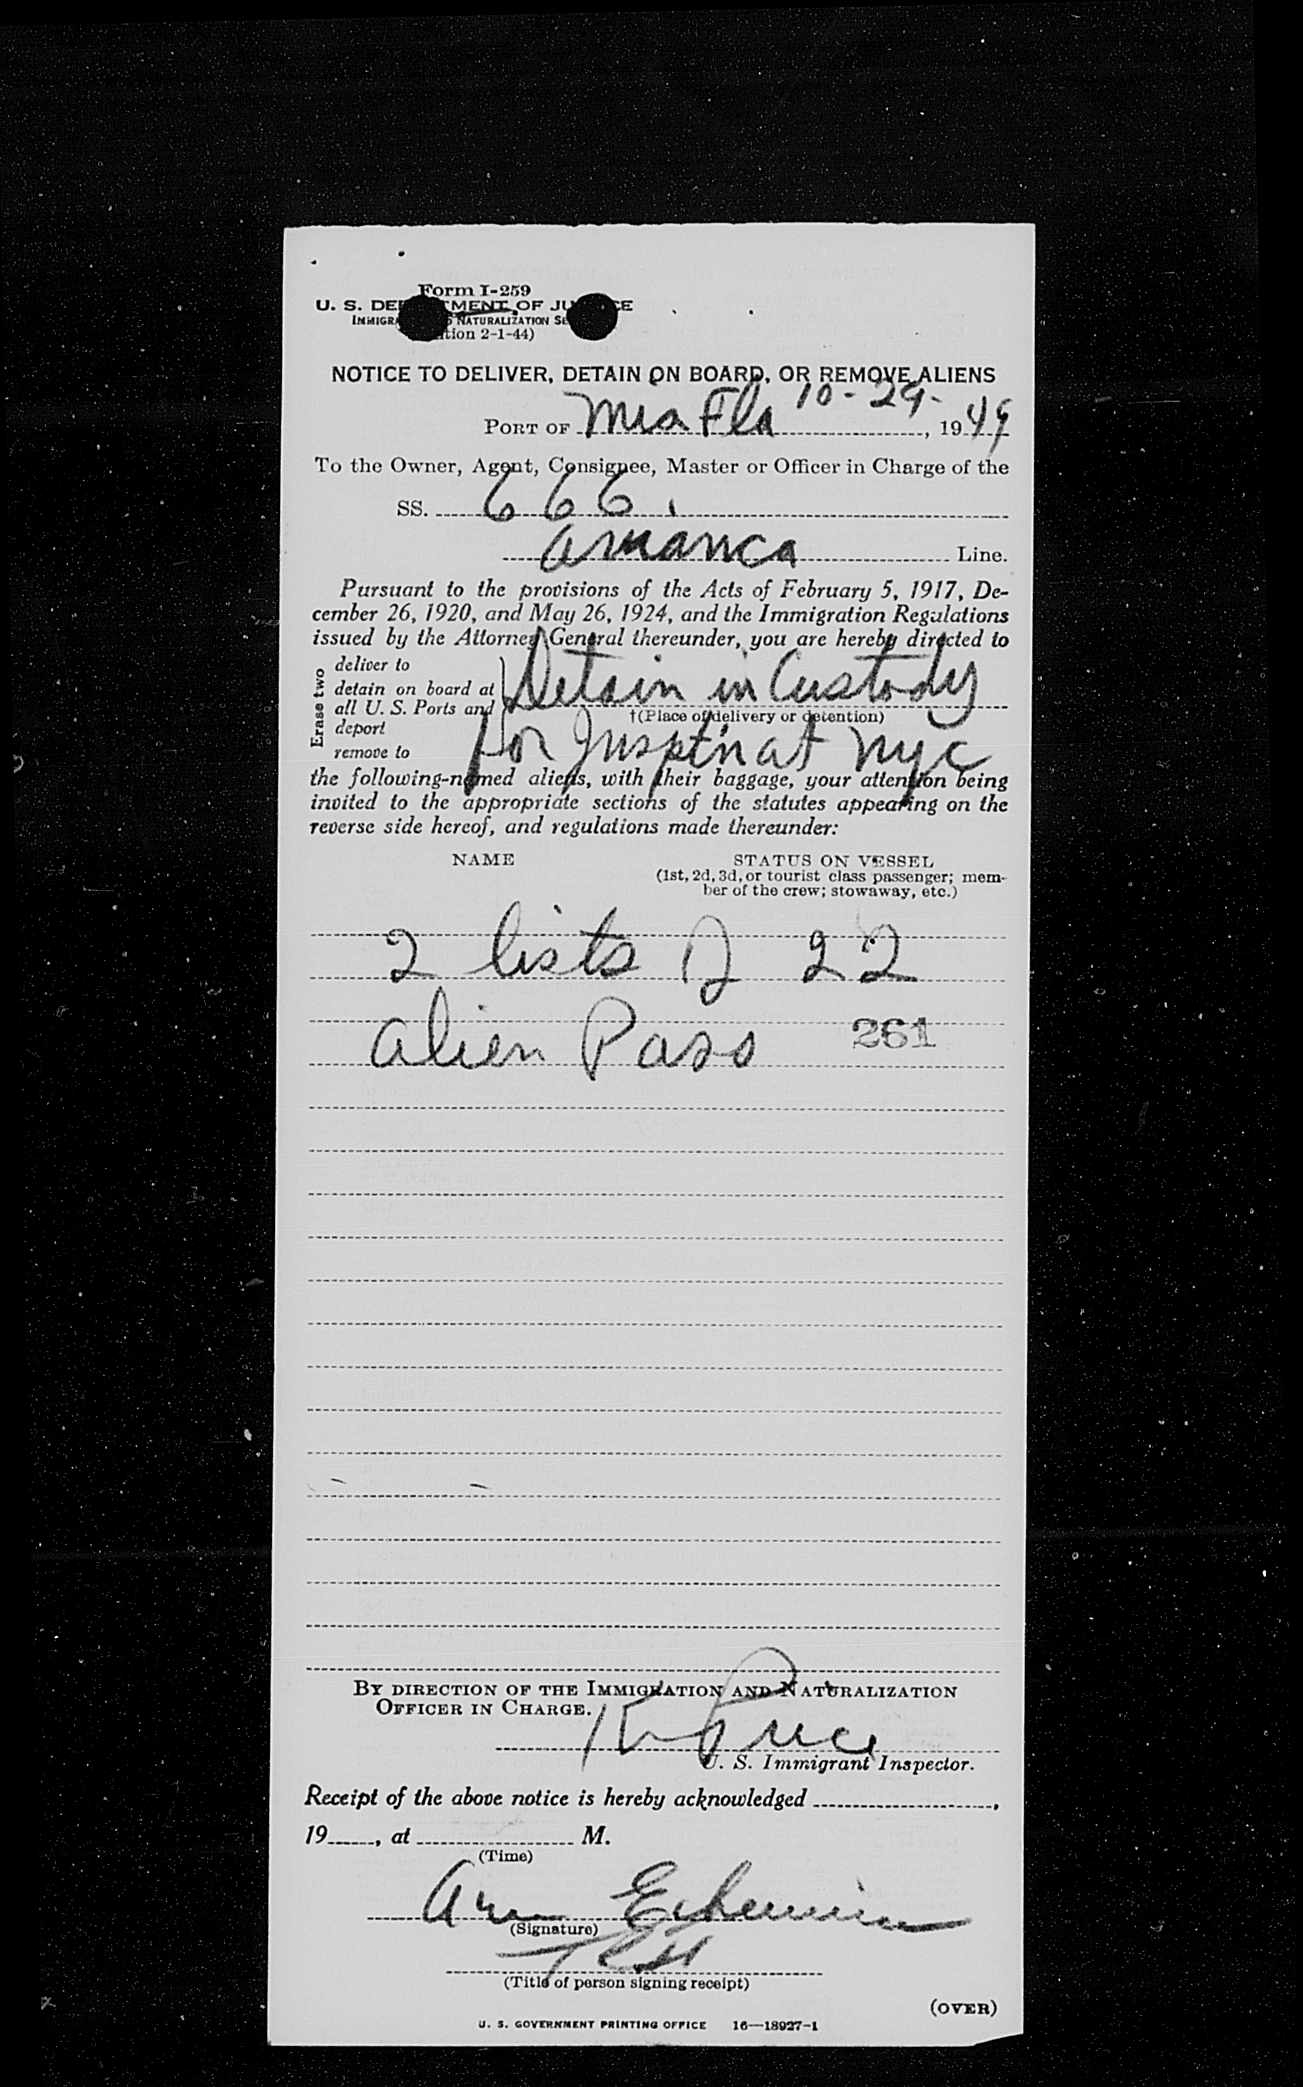 Form I-259
U. S. DE TMENT OF JU CE
IMMIGRA NATURALIZATION SE
tion 2-1-44)
NOTICE TO DELIVER, DETAIN ON BOARD, OR REMOVE ALIENS
PORT OF Mia Fla 10-29-, 1949
To the Owner, Agent, Consignee, Master or Officer in Charge of the
SS. 666
Line.
Pursuant to the provisions of the Acts of February 5, 1917, De-
cember 26, 1920, and May 26, 1924, and the Immigration Regulations
issued by the Attorney General thereunder, you are hereby directed to
Erase two
deliver to
detain on board at
all U. S. Ports and
deport
remove to
Detain in Custody
†(Place of delivery or detention)
for Inspt'n at NYC
the following-named aliens, with their baggage, your attention being
invited to the appropriate sections of the statutes appearing on the
reverse side hereof, and regulations made thereunder:
NAME STATUS ON VESSEL
(1st, 2d, 3d, or tourist class passenger; mem-
ber of the crew; stowaway, etc.)
2 lists of 22
alien Pass 261
BY DIRECTION OF THE IMMIGRATION AND NATURALIZATION
OFFICER IN CHARGE.
Price
U. S. Immigrant Inspector.
Receipt of the above notice is hereby acknowledged ,
19 , at M.
(Time)
(Signature)
(Title of person signing receipt)
(OVER)
U. S. GOVERNMENT PRINTING OFFICE 16—18927-1